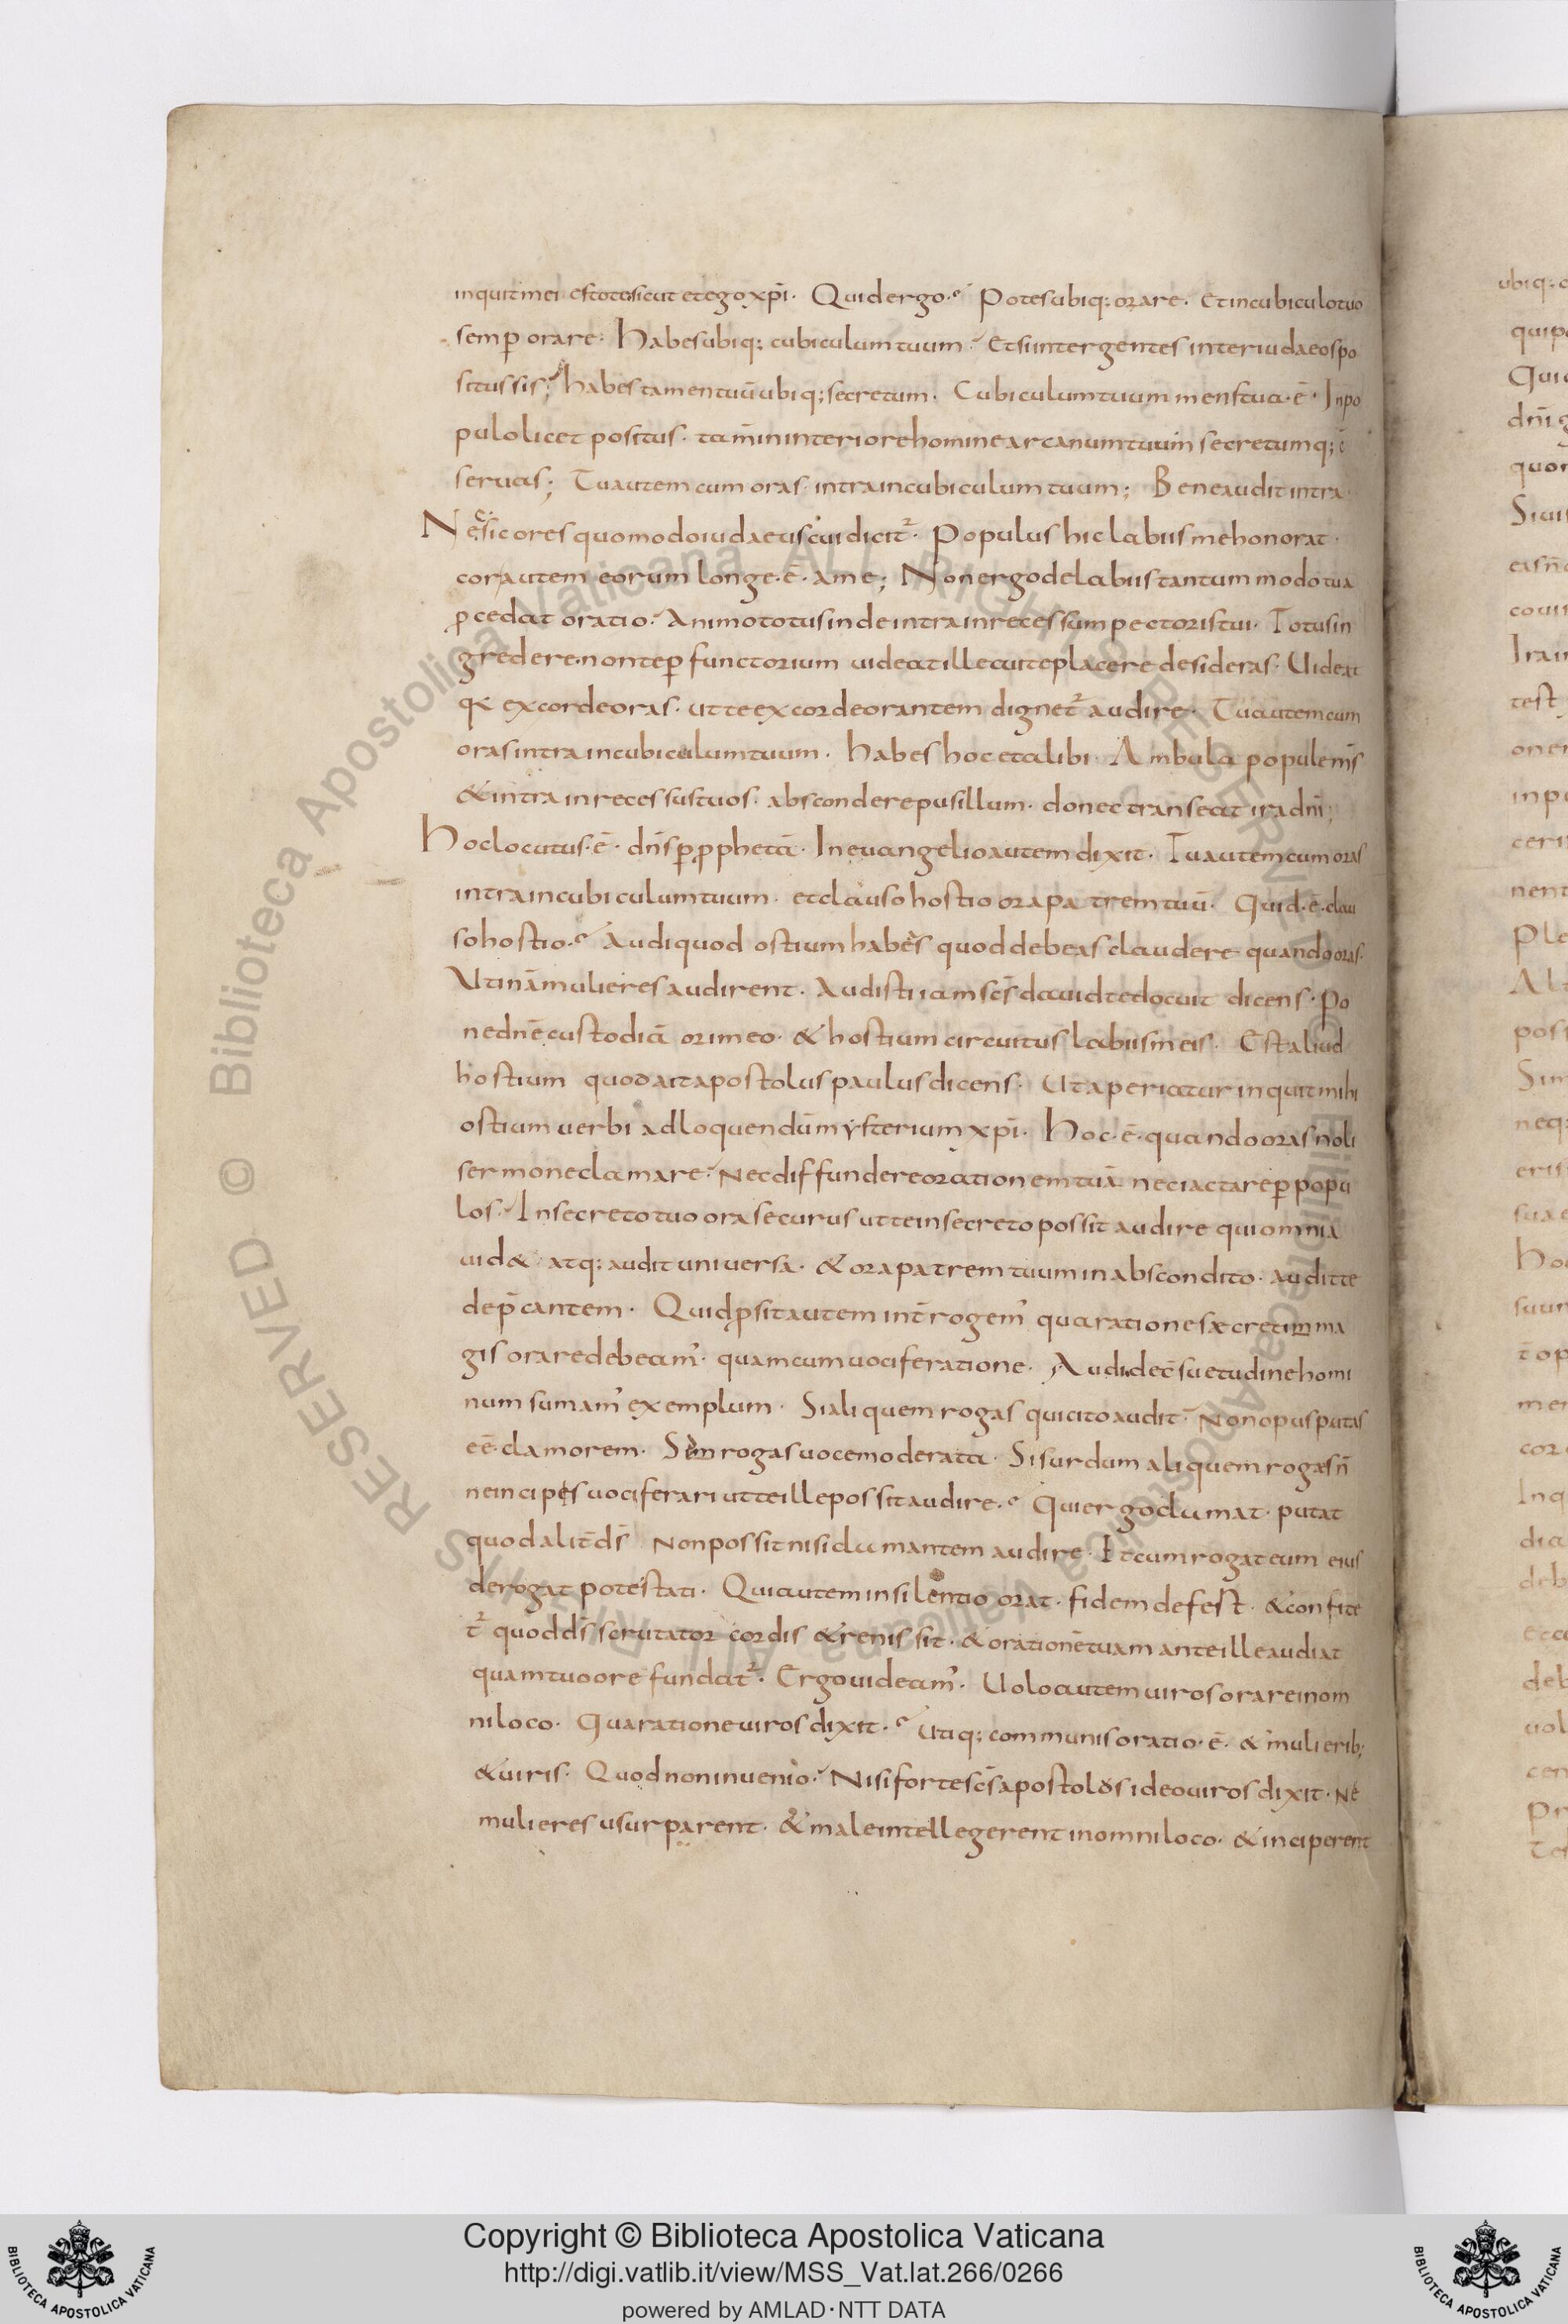 inquit mei estote sicut et ego xp̄i. Quid ergo? Potes ubiq; orare. Et in cubiculo tuo
semꝑ orare. Habes ubiq; cubiculum tuum. Et si inter gentes inter iudaeos po
situs sis; habes tamen tuū ubiq; secretum. Cubiculum tuum mens tua ē. In po
pulo licet positus. tam̄ in interiore homine arcanum tuum secretumq;
servas; Tu autem cum oras intra in cubiculum tuum; Bene audit intra
Ne sic ores quomodo iudaeus cui dicit᷑. Populus hic labiis me honorat.
cor autem eorum longe ē a me; Non ergo de labiis tantummodo tua
ꝓcedat oratio. Animo totus inde intra in recessum pectoris tui. Totus in
gredere. non te ꝑfunctorium videat ille cui te placere desideras. Uideat
q̄ ex corde oras. ut te ex corde orantem dignet᷑ audire. Tu autem cum
oras intra in cubiculum tuum. habes hoc et alibi. Ambula popule m̄s
& intra in recessus tuos. abscondere pusillum. donec transeat ira dn̄i;
Hoc locutus ē dn̄s ꝑ ꝓphetā. In evangelio autem dixit. Tu autem cum oras
intra in cubiculum tuum. et clauso hostio ora patrem tuū. Quid ē clau
so hostio? Audi quod ostium habes quod debeas claudere quando oras.
Utinā mulieres audirent. Audisti iam sc̄s david te docuit dicens. Po
ne dn̄e custodiā ori meo. & hostium circuitus labiis meis. Est aliud
hostium quod ait apostolus paulus dicens. Ut aperiatur inquit mihi
ostium verbi ad loquendū mysterium xp̄i. Hoc ē quando oras noli
sermone clamare. Nec diffundere orationem tuā nec iactare ꝑ popu
los. In secreto tuo ora securus ut te in secreto possit audire qui omnia
uid& atq; audit universa. & ora patrem tuum in abscondito. audit te
dep̄cantem. Quid ꝓsit autem int̄rogem' qua ratione secretim ma
gis orare debeam'. quam cum vociferatione. Audi de c̄suetudine homi
num sumam' exemplum. Si aliquem rogas qui cito audit. Non opus putas
eē clamorem. Sēm rogas voce moderata. Si surdum aliquem rogas n̄
ne incipes vociferari ut te ille possit audire? Qui ergo clamat. putat
quod alit̄ d̄s non possit nisi clamantem audire. Et cum rogat eum eius
derogat potestati. Qui autem in silentio orat. fidem defest. & confite
t᷑ quod d̄s scrutator cordis & renis sit. & orationē tuam ante ille audiat
quam tuo ore fundat᷑. Ergo videam'. Uolo autem viros orare in om
ni loco. Qua ratione viros dixit? Utiq; communis oratio ē & mulierib;
& viris. Quod non invenio. Nisi forte sc̄s apostolos ideo viros dixit. Ne
mulieres usurparent. & male intellegerent in omni loco. & inciperent
Copyright © Biblioteca Apostolica Vaticana
http://digi.vatlib.it/view/MSS_Vat.lat.266/0266
powered by AMLAD·NTT DATA